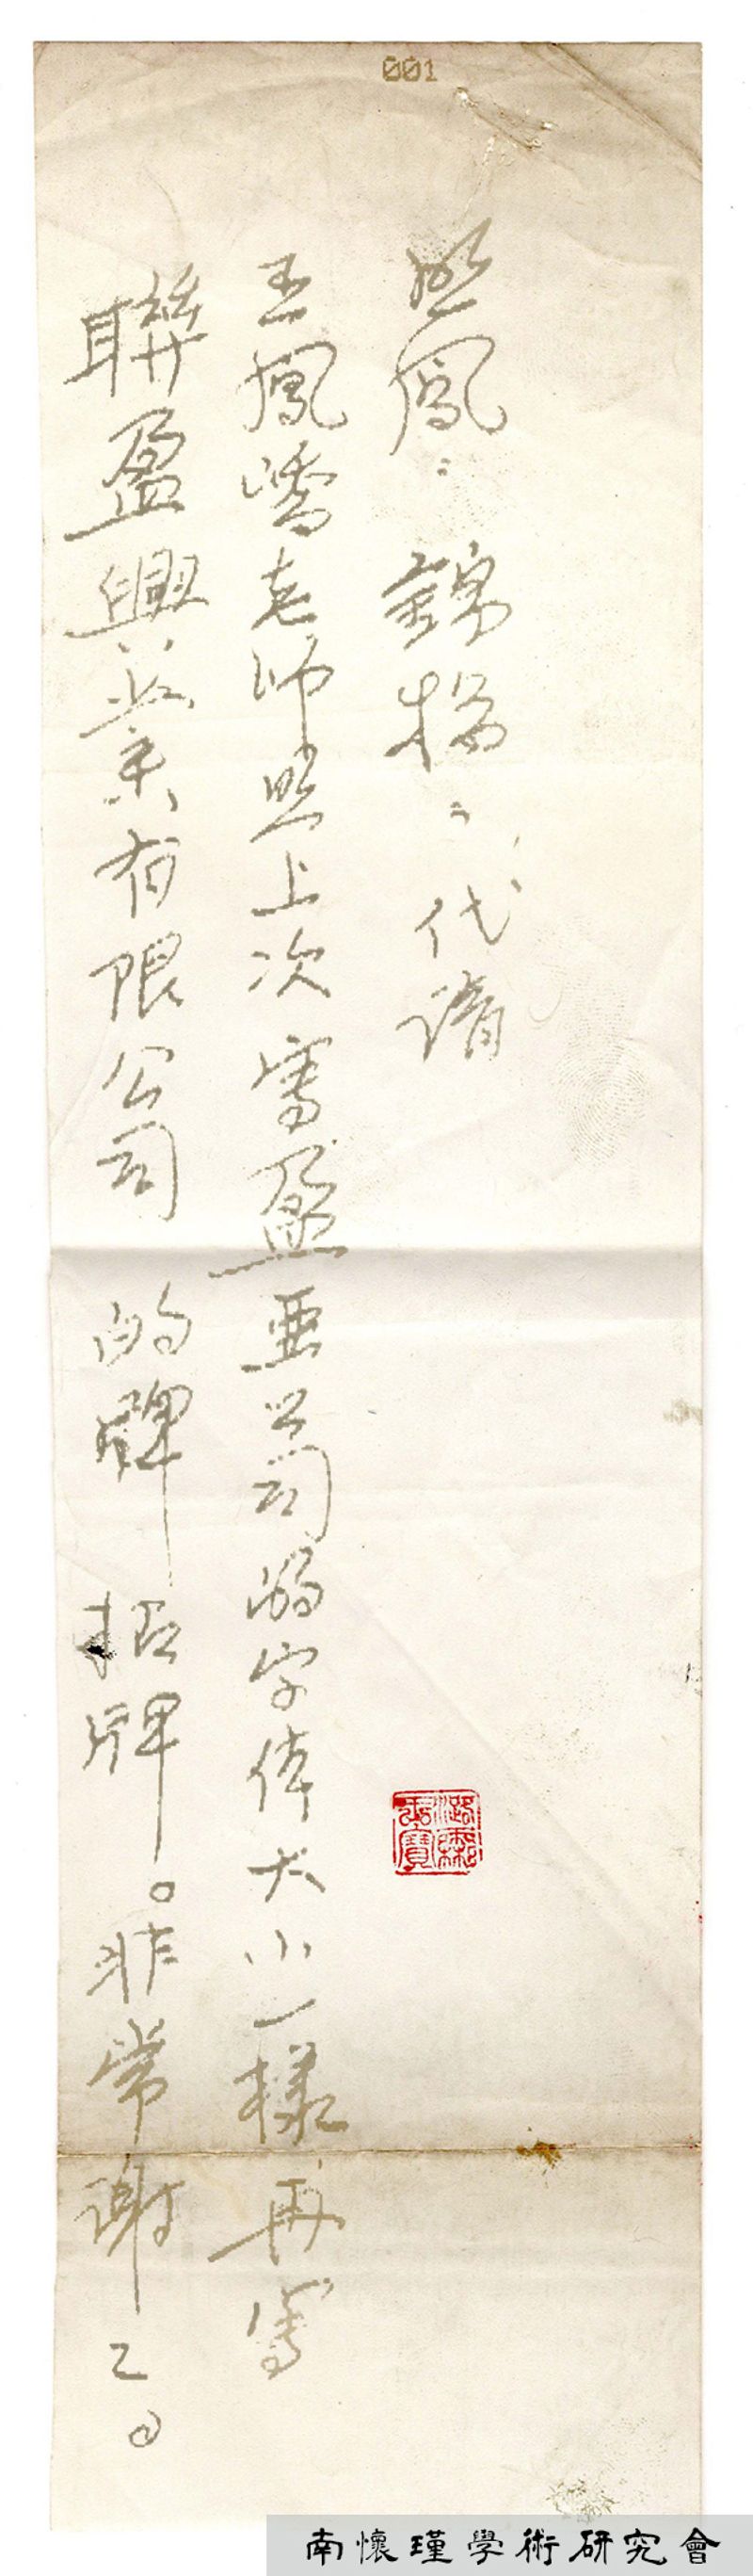 001
照鳳：錦揚：代請
王鳳嶠老師照上次寫盈亜公司的字体大小一樣再寫
聯盈興業有限公司 的牌招牌。非常謝〻。
南懷瑾學術研究會